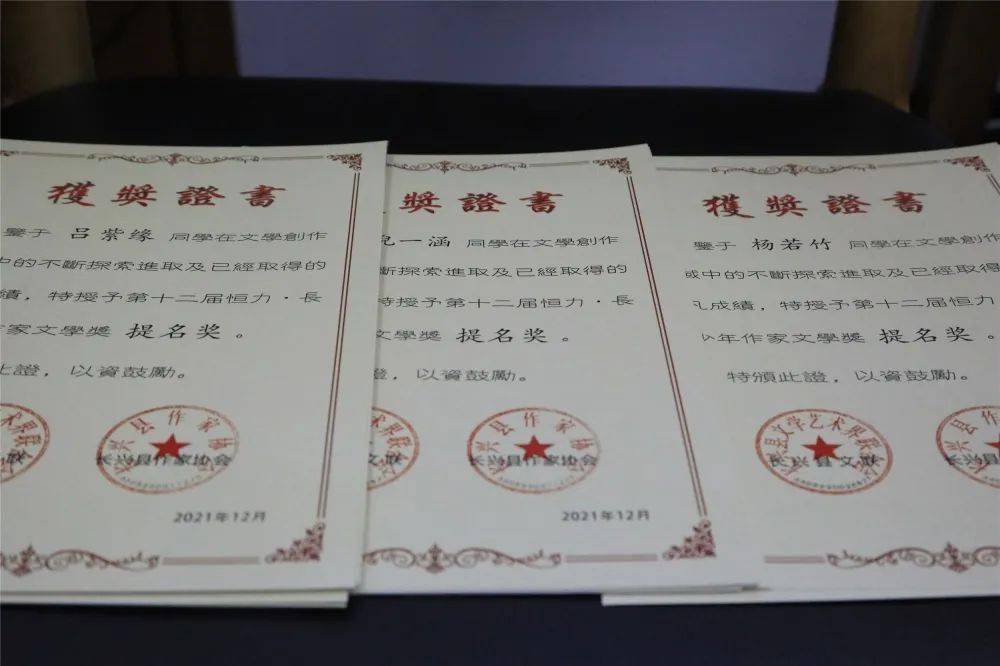 獲獎證書
鑒于 吕紫缘 同學在文學創作
中的不斷探索進取及已經取得的
績，特授予第十二届恒力·長
家文學獎 提名奖 。
此證，以資鼓勵。
术界联
长兴县作家协会
长兴县作家协会
2021年12月
獎證書
一涵 同學在文學創作
斷探索進取及已經取得的
特授予第十二届恒力·長
文學獎 提名奖 。
證，以資鼓勵。
长兴县作家协会
长兴县作家协会
2021年12月
獲獎證書
鑒于 杨若竹 同學在文學創作
中的不斷探索進取及已經取得
成績，特授予第十二届恒力
年作家文學獎 提名奖 。
特頒此證，以資鼓勵。
长兴县文学艺术界联
长兴县文联
长兴县作